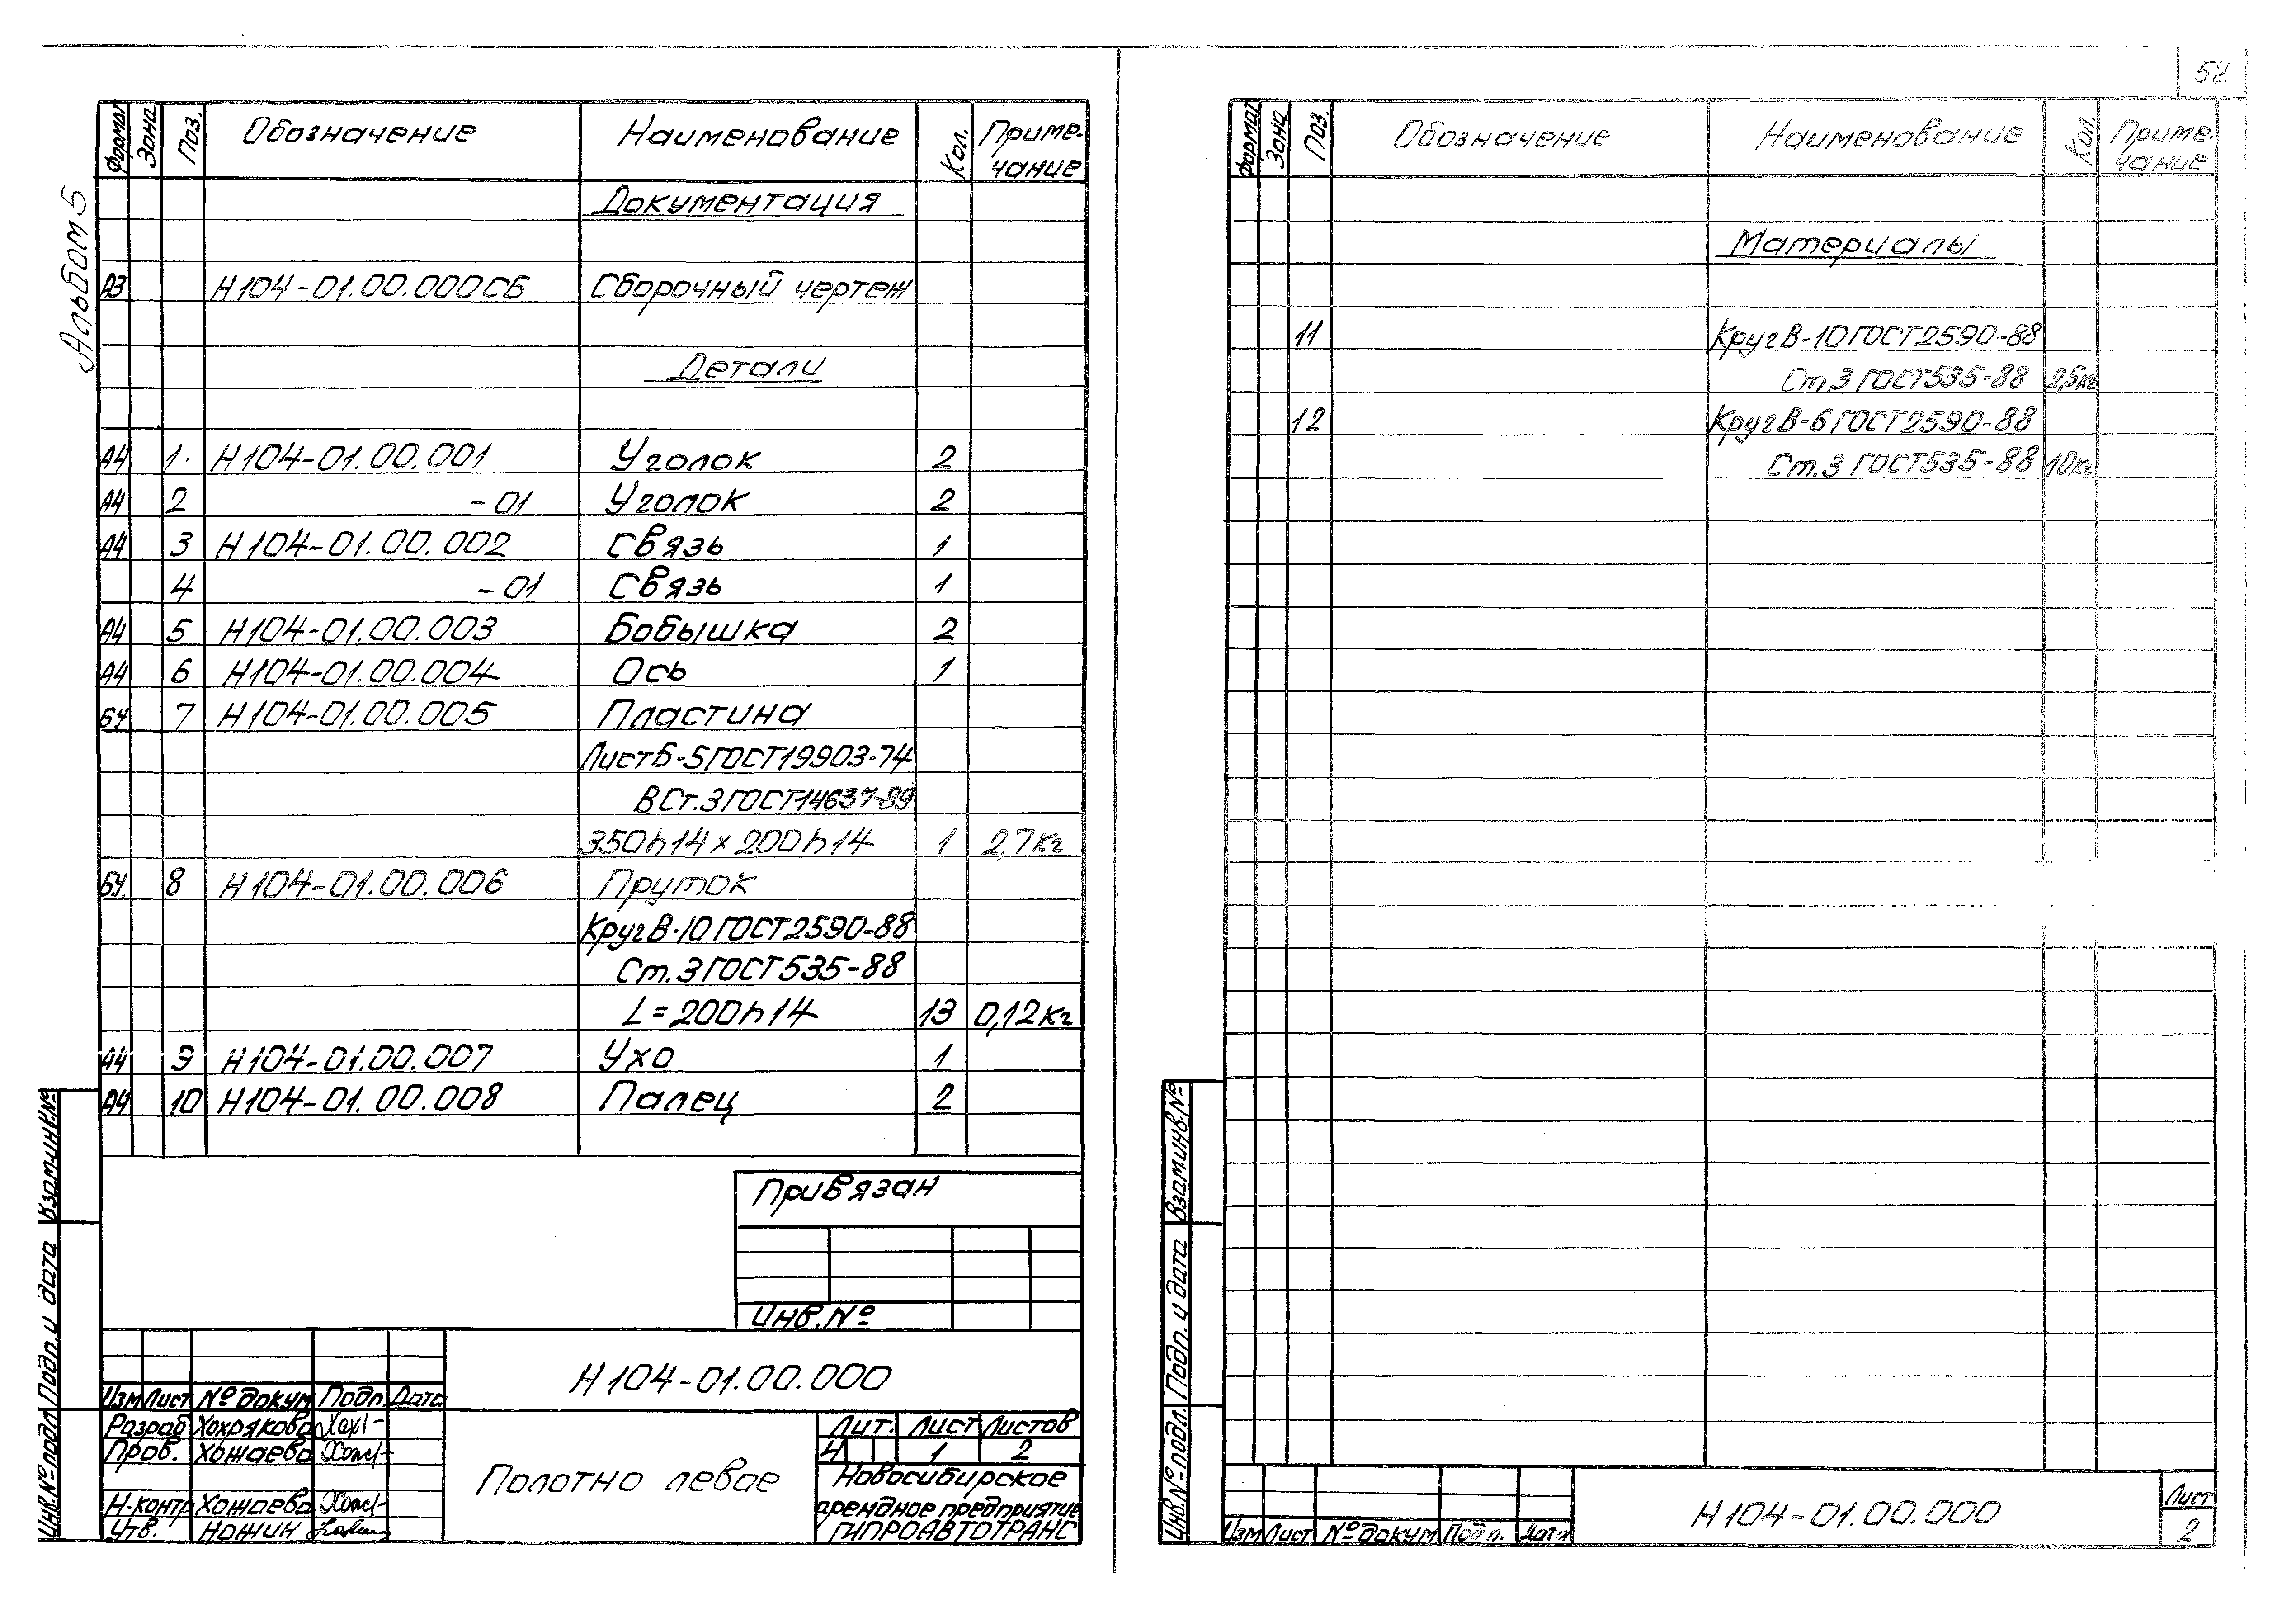 52
Альбом 5
Формат Зона Поз. Обозначение Наименование Кол. Приме-
чание
Документация
А3 Н104-01.00.000СБ Сборочный чертеж
Детали
А4 1 Н104-01.00.001 Уголок 2
А4 2 -01 Уголок 2
А4 3 Н104-01.00.002 Связь 1
4 -01 Связь 1
А4 5 Н104-01.00.003 Бобышка 2
А4 6 Н104-01.00.004 Ось 1
БЧ 7 Н104-01.00.005 Пластина
Лист Б-5 ГОСТ 19903-74
ВСт.3 ГОСТ 14637-89
350h14 х 200h14 1 2,7кг
БЧ. 8 Н104-01.00.006 Пруток
Круг В-10 ГОСТ 2590-88
Ст.3 ГОСТ 535-88
L=200h14 13 0,12кг
А4 9 Н104-01.00.007 Ухо 1
А4 10 Н104-01.00.008 Палец 2
Привязан
Инв.№
Н104-01.00.000
Изм Лист № докум Подп Дата
Разраб Хохрякова
Пров. Хожаева
Н.контр Хожаева
Утв. Ножин
Полотно левое
Лит. Лист Листов
И 1 2
Новосибирское
арендное предприятие
ГИПРОАВТОТРАНС
Инв.№подл Подп. и дата Взам.инв.№
Формат Зона Поз. Обозначение Наименование Кол. Приме-
чание
Материалы
11 Круг В-10 ГОСТ 2590-88
Ст.3 ГОСТ 535-88 2,5кг
12 Круг В-6 ГОСТ 2590-88
Ст.3 ГОСТ 535-88 10кг
Инв.№подл. Подп. и дата Взам.инв.№
Изм Лист № докум Подп. Дата
Н104-01.00.000
Лист
2